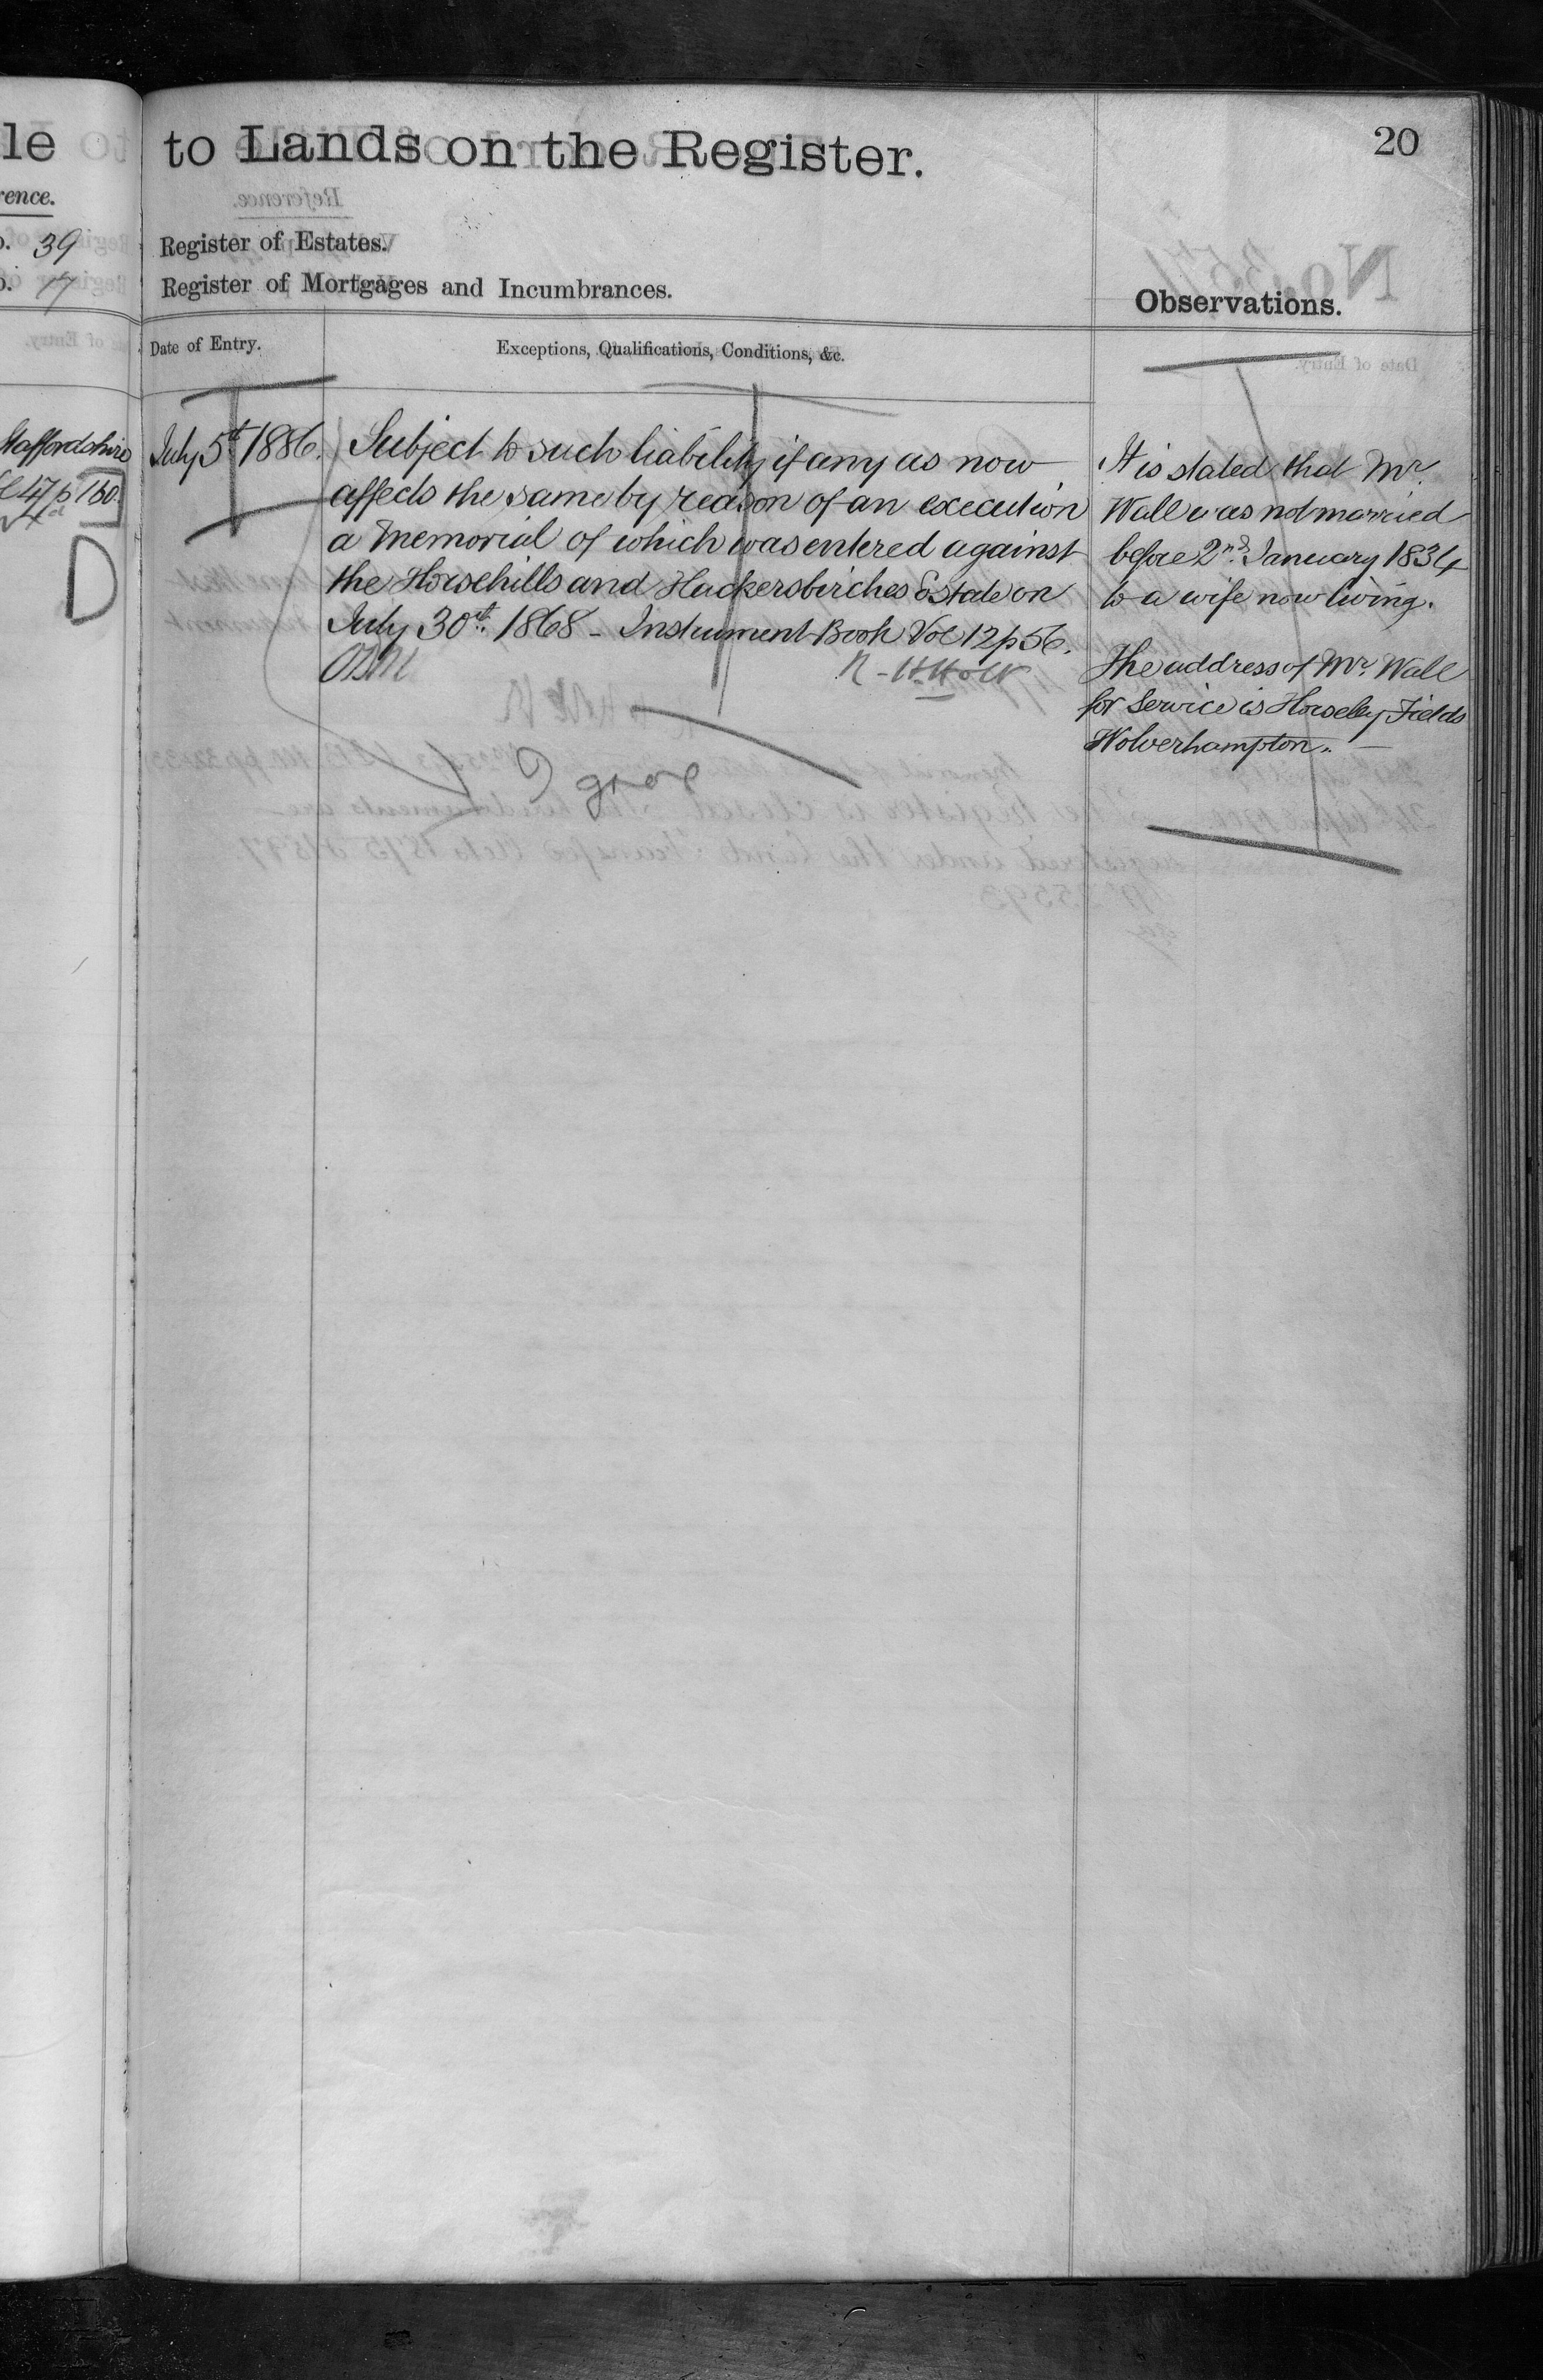 le
to Lands on the Register.
20
rence.
39
Register of Estates.
17
Register of Mortgages and Incumbrances.
Observations.
Date of Entry.
Exceptions, Qualifications, Conditions, &c.
Staffordshire
47 p 160.
D
July 5th 1886.
Subject to such liability if any as now
affects the same by reason of an execution
a Memorial of which was entered against
the Horsehills and Hackersbirches Estate on
July 30th 1868 - Instrument Book Vol 12 p 56.
R - H. Holt
It is stated that Mr.
Wall was not married
before 2nd January 1834
to a wife now living.
The address of Mr. Wall
for Service is Horseley Fields
Wolverhampton.